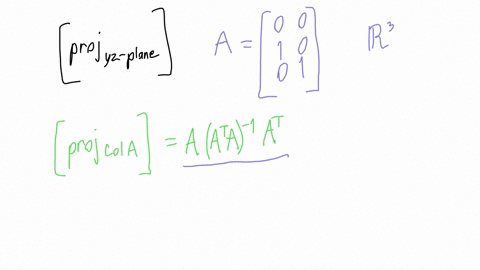 [proj yz-plane] A = [0 0; 1 0; 0 1] ℝ³
[proj Col A] = A (AᵀA)⁻¹ Aᵀ